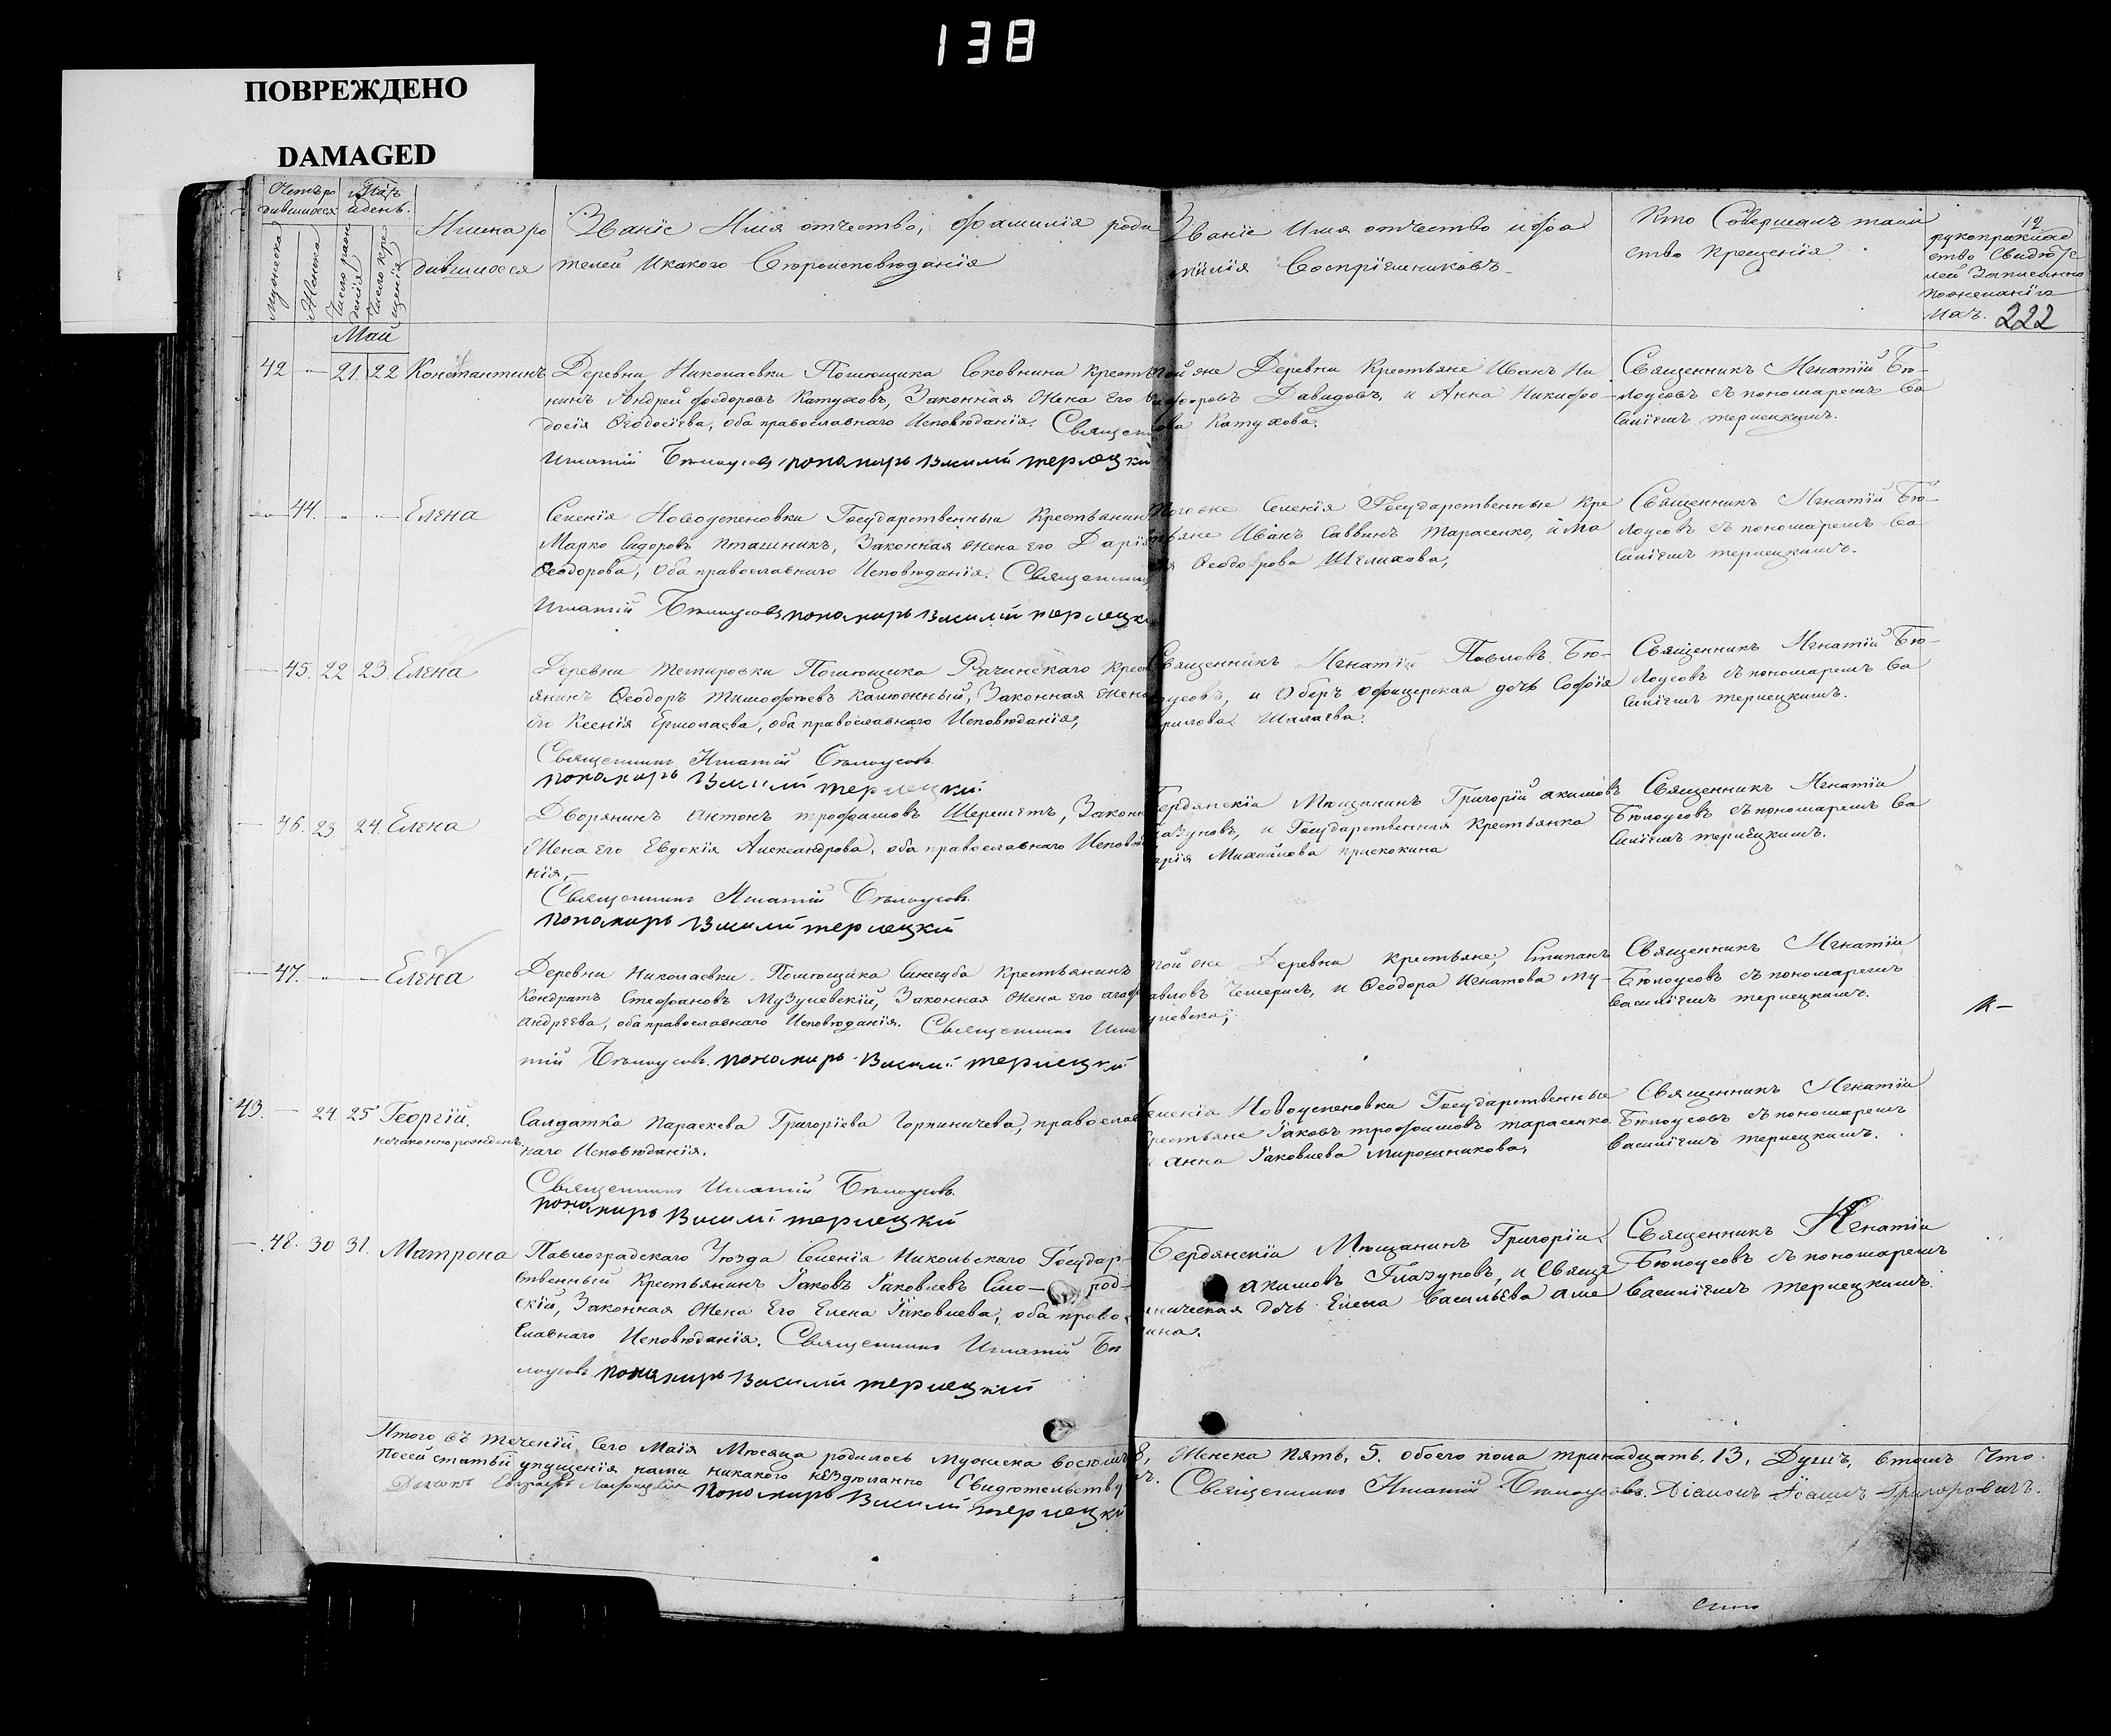 138
ПОВРЕЖДЕНО
DAMAGED
Мужеска
Женска
Число рождения
Число крещенія
Май
Имена ро
дившихся
Званіе Имя отчество, фамилія роди
телей и какого вѣроисповѣданія
Званіе Имя отчество и фа
милія Воспріемниковъ
Кто Совершалъ таин
ство крещенія
12
рукоприклад
ство Свидѣте
лей Записанно
222
42 — 21. 22 Константинъ
Деревни Николаевки Помѣщика Соковнина Крестья
нинъ Андрей Ѳедоровъ Катуховъ, Законная жена Его Ѳе
досія Ѳеодосіева, оба православнаго Исповѣданія. Священ
Игнатій Бѣлоусовъ пономарь Василій терлецкій
той же Деревни Крестьяне Иванъ Ни
кифоровъ Давидовъ, и Анна Никифо
рова Катухова.
Священникъ Игнатій Бѣ-
лоусовъ съ пономаремъ Ва
силіемъ терлецкимъ.
— 44. " — Елена
Селенія Новоуспеновки Государственный Крестьянинъ
Марко Сидоровъ Пташникъ, Законная жена его Дарія
Ѳеодорова, оба православнаго Исповѣданія. Священникъ
Игнатій Бѣлоусовъ пономарь Василій терлецкій
того же Селенія Государственные Кре
стьяне Иванъ Саввинъ Тарасенко, и Ма
рія Ѳеодорова Шелихова,
Священникъ Игнатій Бѣ-
лоусовъ съ пономаремъ Ва
силіемъ терлецкимъ.
— 45. 22 23. Елена
Деревни Темировки Помѣщика Рачинскаго Крест
янинъ Ѳеодоръ Тимофѣевъ Калюжный, Законная жена
Его Ксенія Ермолаева, оба православнаго Исповѣданія,
Священникъ Игнатій Бѣлоусовъ.
пономарь Василій терлецкій.
Священникъ Игнатій Павловъ Бѣ-
лоусовъ, и Оберъ офицерская дочь Софія
Кирилова Шалаева.
Священникъ Игнатій Бѣ-
лоусовъ съ пономаремъ Ва
силіемъ терлецкимъ.
— 46. 23 24. Елена
Дворянинъ Антонъ трофимовъ Шереметъ, Законная
Жена Его Евдокія Александрова, оба православнаго Исповѣда
нія,
Священникъ Игнатій Бѣлоусовъ.
пономарь Василій терлецкій
Бердянскій Мѣщанинъ Григорій акимовъ
Глазуновъ, и Государственная Крестьянка
Марія Михайлова прискокина
Священникъ Игнатій
Бѣлоусовъ съ пономаремъ Ва
силіемъ терлецкимъ.
— 47. " — Елена
Деревни Николаевки Помѣщика Синегуба Крестьянинъ
Кондратъ Стефановъ Музулевскій, Законная жена Его агафія
андреева, оба православнаго Исповѣданія. Священникъ Игна
тій Бѣлоусовъ. пономарь Василій терлецкій
той же Деревни крестьяне, Стипанъ
Павловъ Чемерисъ, и Ѳеодора Игнатова Му-
зулевска,
Священникъ Игнатій
Бѣлоусовъ съ пономаремъ
Василіемъ терлецкимъ.
43. — 24. 25 Георгій.
незаконнорожденъ.
Салдатка Параскева Григоріева Горпиничева, православ
наго Исповѣданія.
Священникъ Игнатій Бѣлоусовъ.
пономарь Василій терлецкій
Селенія Новоуспеновки Государственные
Крестьяне Іаковъ трофимовъ тарасенко
и анна Іаковлева Мирошникова,
Священникъ Игнатій
Бѣлоусовъ съ пономаремъ
Василіемъ терлецкимъ.
— 48. 30 31. Матрона
Павлоградскаго Уѣзда Селенія Никольскаго Государ-
ственный Крестьянинъ Іаковъ Іаковлевъ род-
скій, Законная жена Его Елена Іаковлева, оба право
славнаго Исповѣданія. Священникъ Игнатій Бѣ
лоусовъ. пономарь Василій терлецкій
Бердянскій Мѣщанинъ Григорій
акимовъ Глазуновъ, и Священ
ническая дочь Елена Васильева
Священникъ Игнатій
Бѣлоусовъ съ пономаремъ
Василіемъ терлецкимъ.
Итого въ теченіи Сего Маія Мѣсяца родилось Мужеска восемь 8, Женска Пять, 5. обоего пола тринадцать, 13, Душъ, втомъ Что
посей статьи упущенія нами никакого нездѣланно Свидѣтельству
Священникъ Игнатій Бѣлоусовъ. Діаконъ Іоаннъ Григоровичъ.
пономарь Василій терлецкій